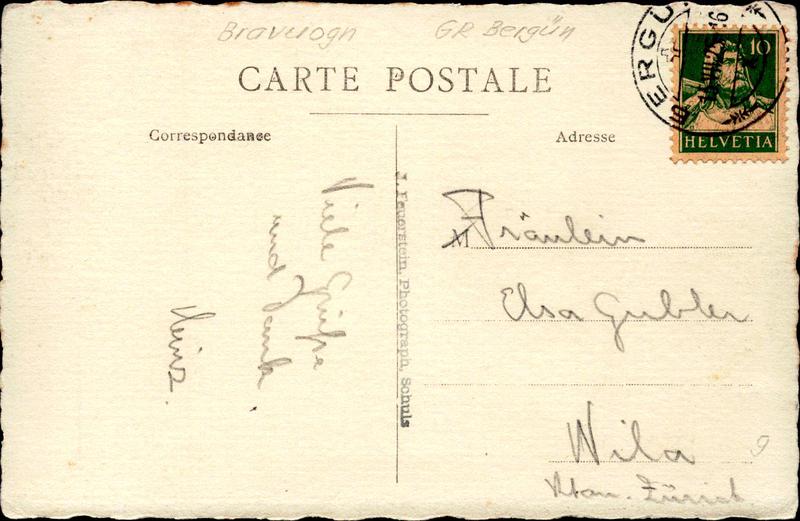 Bravuogn GR Bergün
CARTE POSTALE
Correspondance
Adresse
BERGÜ
10
HELVETIA
Viele Grüsse
und Dank
Heinz.
J. Feuerstein, Photograph, Schuls
M
Fräulein
Elsa Gubler
Wila
Ktan. Zürich
9